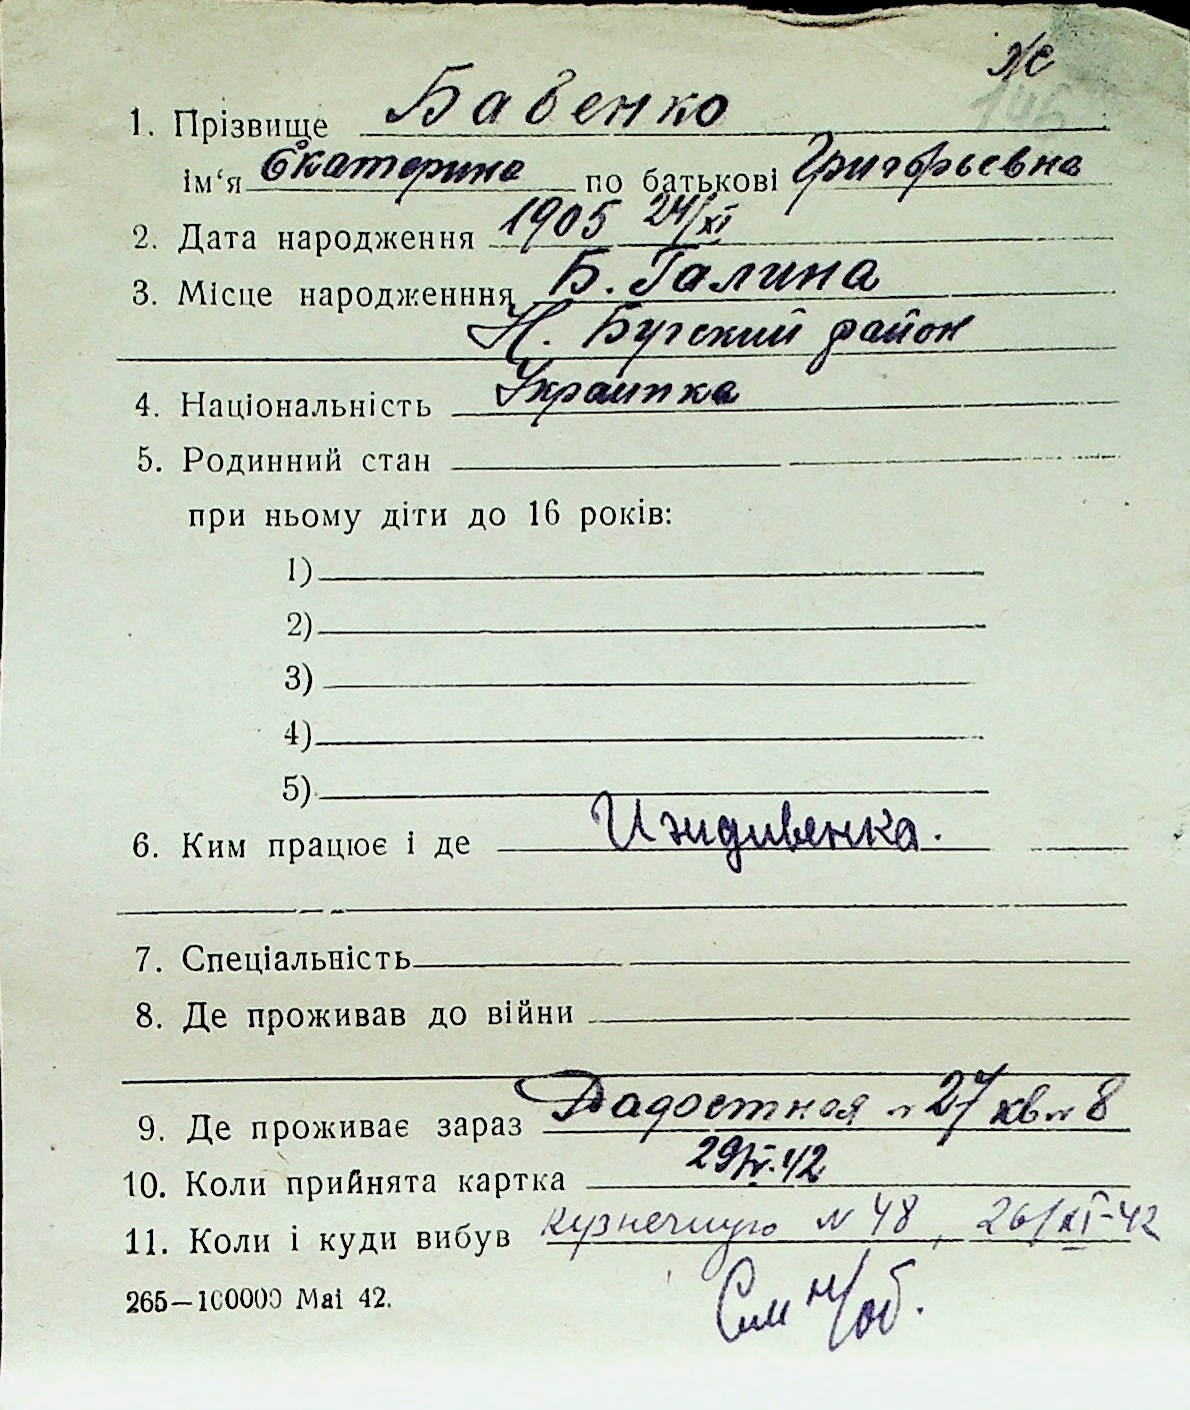 Же
146
1. Прізвище Бавенко
ім‘я Екатерина по батькові Григорьевна
2. Дата народження 1905 24/XI
3. Місце народженння Б. Галина
Н. Бугский район
4. Націона­льність Украинка
5. Родинний стан
при ньому діти до 16 років:
1)
2)
3)
4)
5)
6. Ким працює і де Иждивенка.
7. Спеціальність
8. Де проживав до війни
9. Де проживає зараз Радостная № 27 кв № 8
10. Коли прийнята картка 29/IV.42
11. Коли і куди вибув кузнечную № 48, 26/XI-42
265—100000 Mai 42.